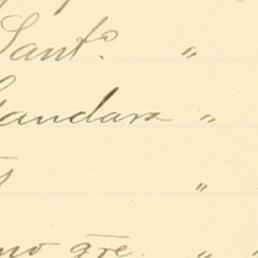 Santo. "
Gandara "
"
no gre. "